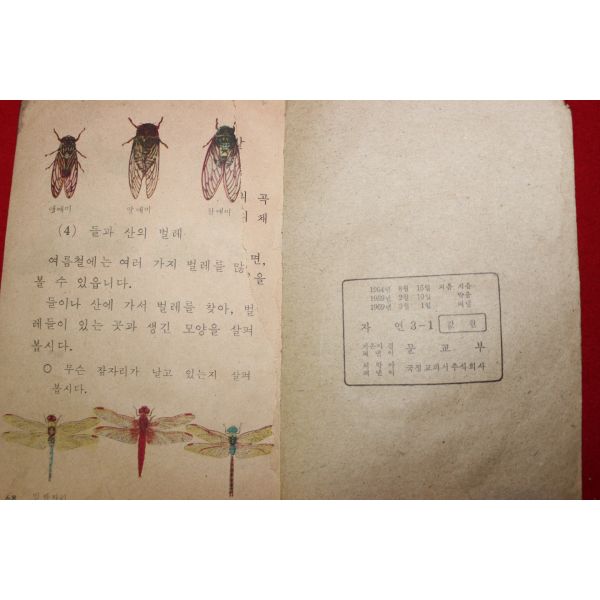 말매미
참매미
(4) 들과 산의 벌레
여름철에는 여러 가지 벌레를 많
볼 수 있읍니다.
들이나 산에 가서 벌레를 찾아, 벌
레들이 있는 곳과 생긴 모양을 살펴
봅시다.
○ 무슨 잠자리가 날고 있는지 살펴
봅시다.
68
곡
체
면,
을
1964년 8월 15일 처음 지음
1969년 2월 10일 박음
1969년 3월 1일 펴냄
자 연 3-1
지은이 겸
펴낸이 문 교 부
박은이
펴낸이 국정교과서주식회사